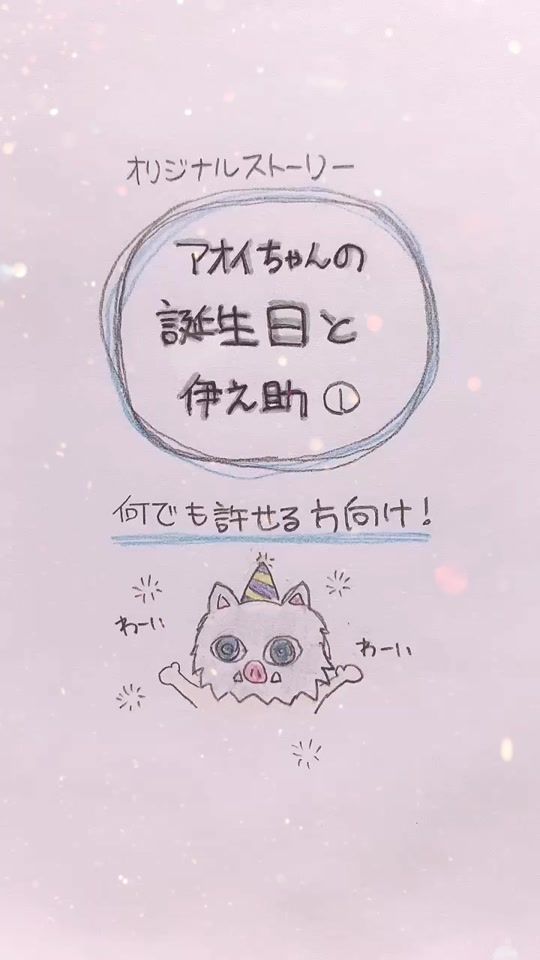 オリジナルストーリー
アオイちゃんの
誕生日と
伊之助①
何でも許せる方向け!
わーい
わーい